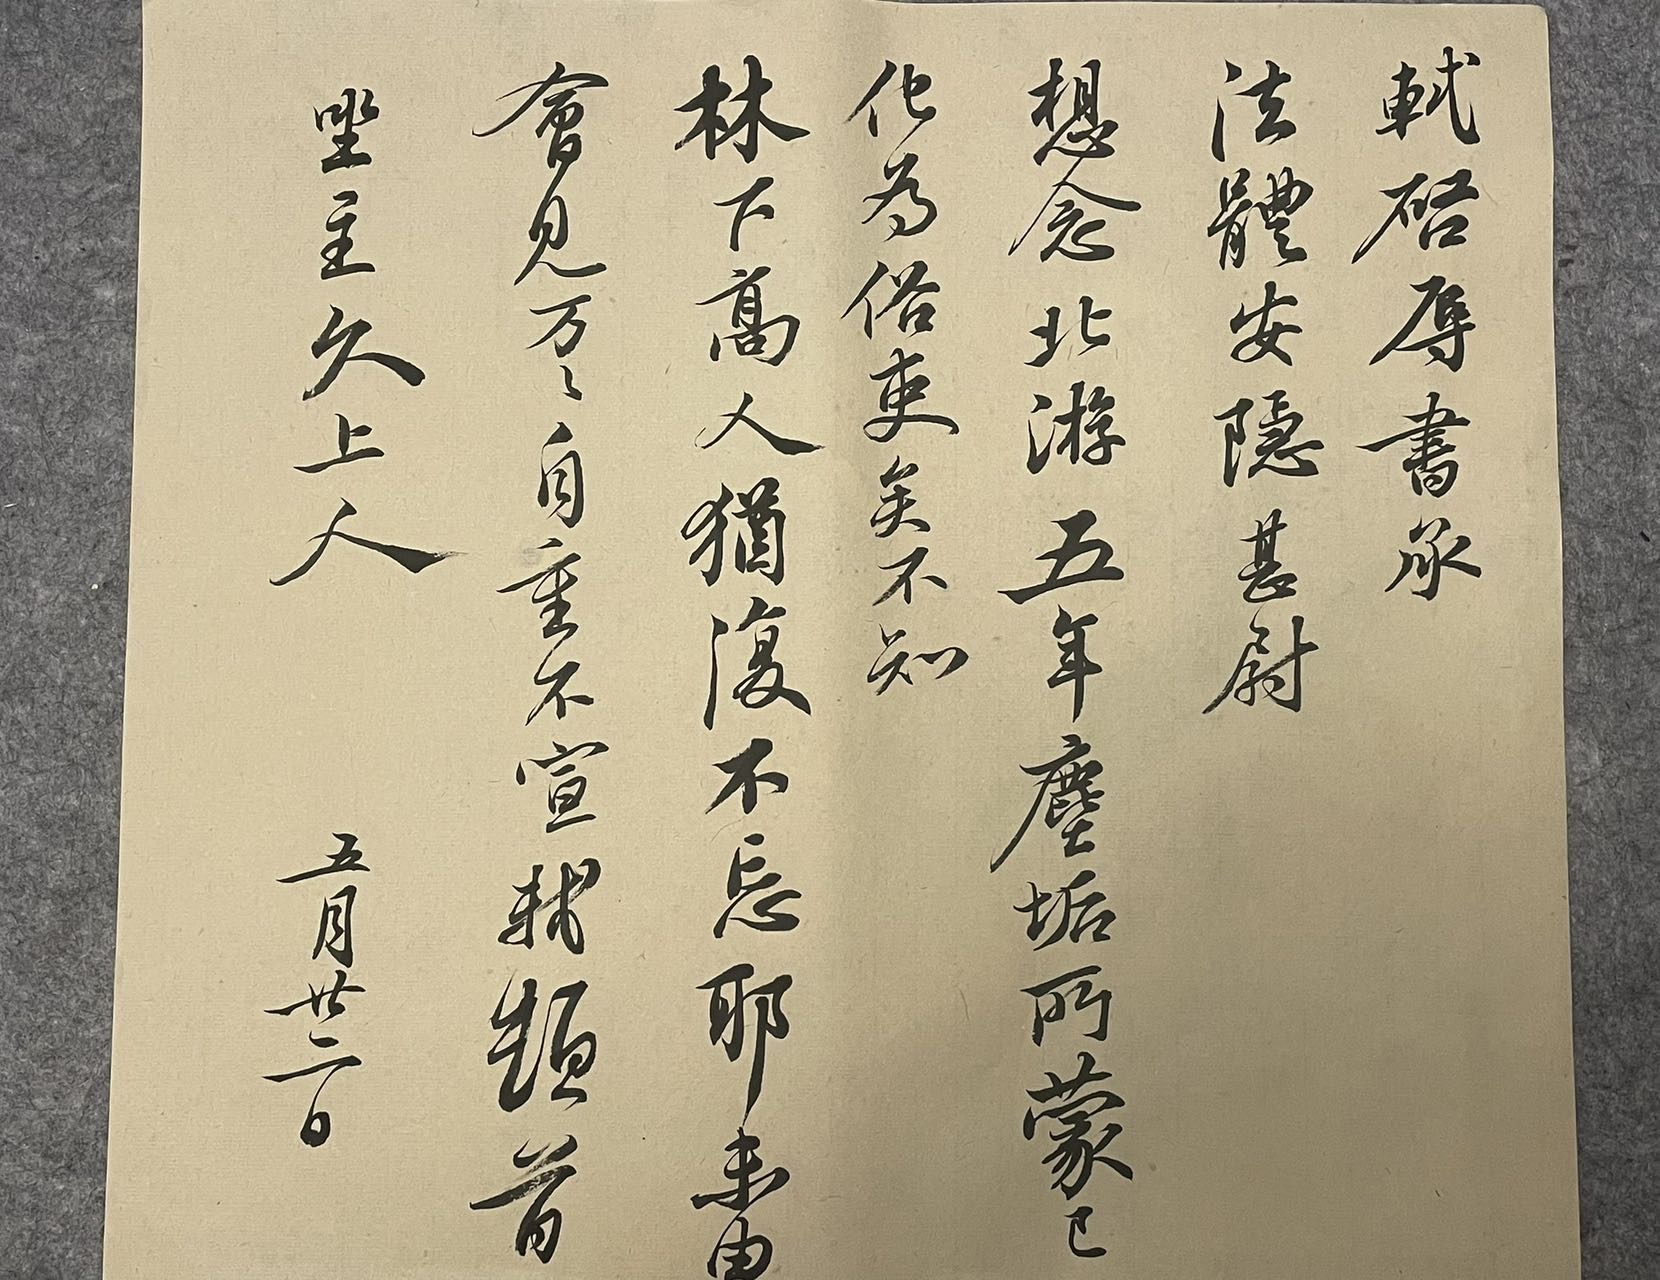 軾啓辱書承
法體安隱甚尉
想念北游五年塵垢所蒙已
化為俗吏矣不知
林下高人猶復不忘耶未由
會見万〻自重不宣軾頓首
坐主久上人
五月廿二日